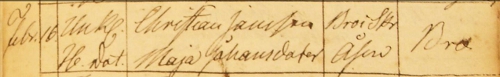 Febr. 16 Unk. Christian Janssen Broi Skr Bro
H. dot. Maja Johansdoter Åsen